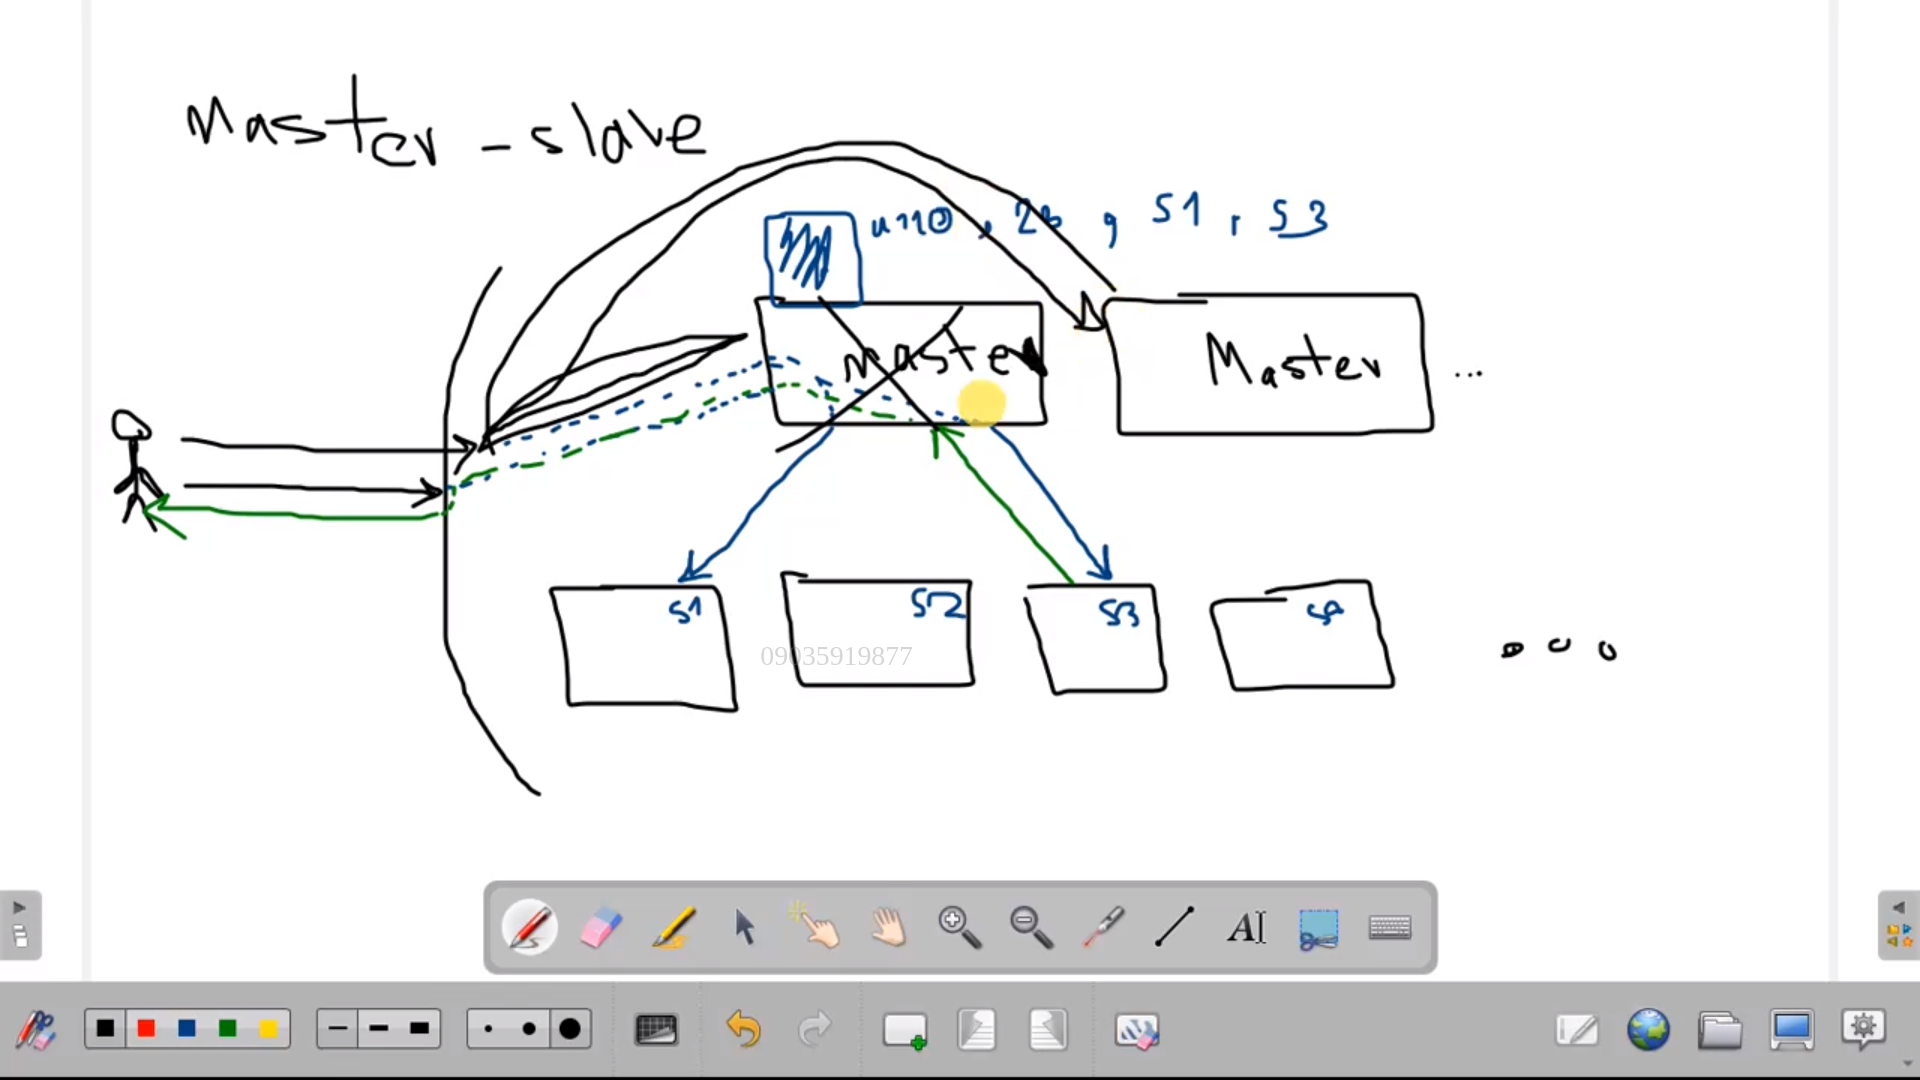 Master - slave
, S1 , S3
Master
Master
...
S1
S2
S3
09035919877